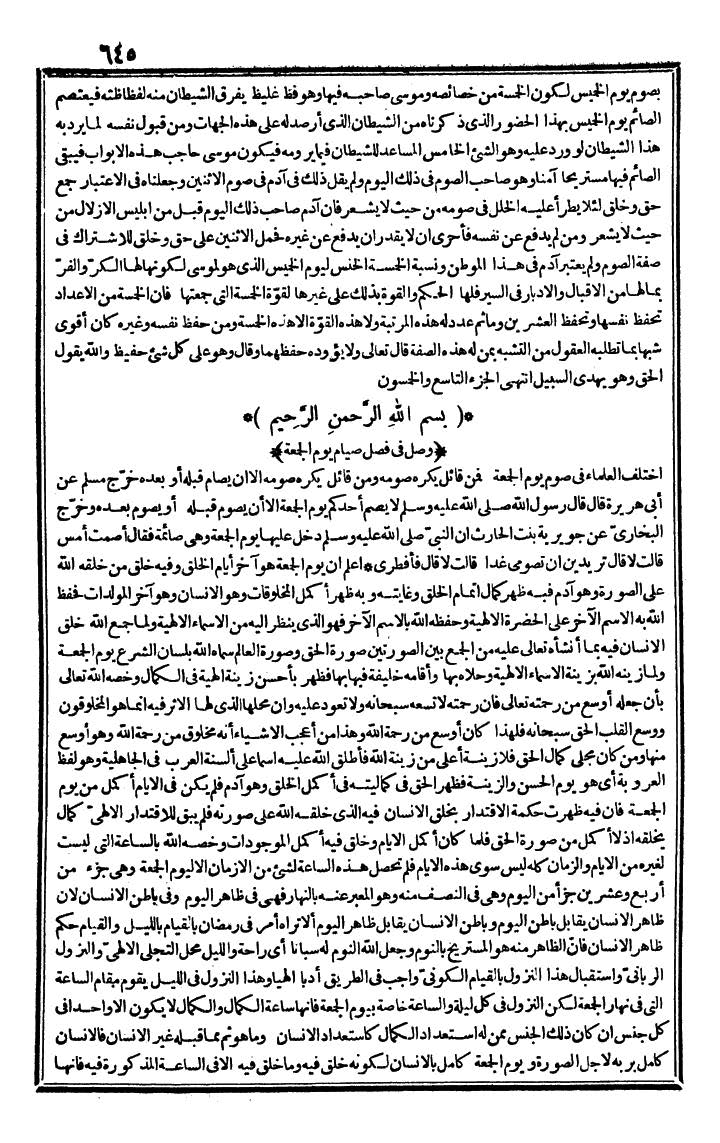 ٦٤٥
بصوم يوم الخيس لكون الخسة من خصائصه وموسى صاحبه فيها وهو فظ غليظ يفرق الشيطان منه لفظاظته فيعتصم
الصائم يوم الخيس بهذا الحضور الذى ذكرناه من الشيطان الذى أرصد له على هذه الجهات ومن قبول نفسه لما يرد به
هذا الشيطان لو ورد عليه وهو الشئ الخامس المساعد للشيطان فيما يرومه فيكون موسى حاجب هذه الابواب فيبقى
الصائم فيها مستريحا آمنا وهو صاحب الصوم فى ذلك اليوم ولم يقل ذلك فى آدم فى صوم الاثنين وجعلناه فى الاعتبار جمع
حق وخلق لئلا يطرأ عليه الخلل فى صومه من حيث لا يشعر فان آدم صاحب ذلك اليوم قبل من ابليس الازلال من
حيث لا يشعر ومن لم يدفع عن نفسه فأحرى ان لا يقدر ان يدفع عن غيره فحمل الاثنين على حق وخلق للاشتراك فى
صفة الصوم ولم يعتبر آدم فى هذا الموطن ونسبة الخسة الخنس ليوم الخيس الذى هو لموسى لكونها لها الكرّ والفرّ
بما لها من الاقبال والادبار فى السير فلها الحكم والقوة بذلك على غيرها لقوّة الخسة التى جمعتها فان الخسة من الاعداد
تحفظ نفسها وتحفظ العشرين وما ثم عدد له هذه المرتبة ولا هذه القوّة الا هذه الخسة ومن حفظ نفسه وغيره كان أقوى
شبها بما تطلبه العقول من التشبه بمن له هذه الصفة قال تعالى ولا يؤوده حفظهما وقال وهو على كل شئ حفيظ والله يقول
الحق وهو يهدى السبيل انتهى الجزء التاسع والخسون
*( بسم الله الرَّحمنِ الرَّحِيم )*
﴿وصل فى فصل صيام يوم الجعة﴾
اختلف العلماء فى صوم يوم الجعة فمن قائل يكره صومه ومن قائل يكره صومه الا ان يصام قبله أو بعده خرّج مسلم عن
أبى هريرة قال قال رسول الله صلى الله عليه وسلم لا يصم أحدكم يوم الجعة الا أن يصوم قبله أو يصوم بعده وخرّج
البخارىّ عن جويرية بنت الحارث ان النبىّ صلى الله عليه وسلم دخل عليها يوم الجعة وهى صائمة فقال أصمت أمس
قالت لا قال تريدين ان تصومى غدا قالت لا قال فأفطرى * اعلم ان يوم الجعة هو آخر أيام الخلق وفيه خلق من خلقه الله
على الصورة وهو آدم فبه ظهر كمال اتمام الخلق وغايته وبه ظهر أكمل المخلوقات وهو الانسان وهو آخر المولدات فحفظ
الله به الاسم الآخر على الحضرة الالهية وحفظه الله بالاسم الآخر فهو الذى ينظر اليه من الاسماء الالهية ولما جمع الله خلق
الانسان فيه بما أنشأه تعالى عليه من الجمع بين الصورتين صورة الحق وصورة العالم سماه الله بلسان الشرع يوم الجعة
ولما زينه الله بزينة الاسماء الالهية وحلاه بها وأقامه خليفة فيها بها فظهر بأحسن زينة الهية فى الكمال وخصه الله تعالى
بأن جعله أوسع من رحمته تعالى فان رحمته لا تسعه سبحانه ولا تعود عليه وان محلها الذى لها الاثر فيه انما هو المخلوقون
ووسع القلب الحق سبحانه فلهذا كان أوسع من رحمة الله وهذا من أعجب الاشياء أنه مخلوق من رحمة الله وهو أوسع
منها ومن كان مجلى كمال الحق فلا زينة أعلى من زينة الله فأطلق الله عليه اسما على ألسنة العرب فى الجاهلية وهو لفظ
العروبة أى هو يوم الحسن والزينة فظهر الحق فى كماليته فى أكمل الخلق وهو آدم فلم يكن فى الايام أكمل من يوم
الجعة فان فيه ظهرت حكمة الاقتدار بخلق الانسان فيه الذى خلقه الله على صورته فلم يبق للاقتدار الالهىّ كمال
يخلقه اذ لا أكمل من صورة الحق فلما كان أكمل الايام وخلق فيه أكمل الموجودات وخصه الله بالساعة التى ليست
لغيره من الايام والزمان كله ليس سوى هذه الايام فلم تحصل هذه الساعة لشئ من الازمان الا ليوم الجعة وهى جزء من
أربع وعشرين جزأ من اليوم وهى فى النصف منه وهو المعبر عنه بالنهار فهى فى ظاهر اليوم وفى باطن الانسان لان
ظاهر الانسان يقابل باطن اليوم وباطن الانسان يقابل ظاهر اليوم ألا تراه أمر فى رمضان بالقيام بالليل والقيام حكم
ظاهر الانسان فانّ الظاهر منه هو المستريح بالنوم وجعل الله النوم له سباتا أى راحة والليل محل التجلى الالهىّ والنزول
الربانىّ واستقبال هذا النزول بالقيام الكونىّ واجب فى الطريق أدبا الهيا وهذا النزول فى الليل يقوم مقام الساعة
التى فى نهار الجعة لكن النزول فى كل ليلة والساعة خاصة بيوم الجعة فانها ساعة الكمال والكمال لا يكون الا واحدا فى
كل جنس ان كان ذلك الجنس ممن له استعداد الكمال كاستعداد الانسان وما هو ثم مما قبله غير الانسان فالانسان
كامل بربه لاجل الصورة ويوم الجعة كامل بالانسان لكونه خلق فيه وما خلق فيه الا فى الساعة المذكورة فيه فانها